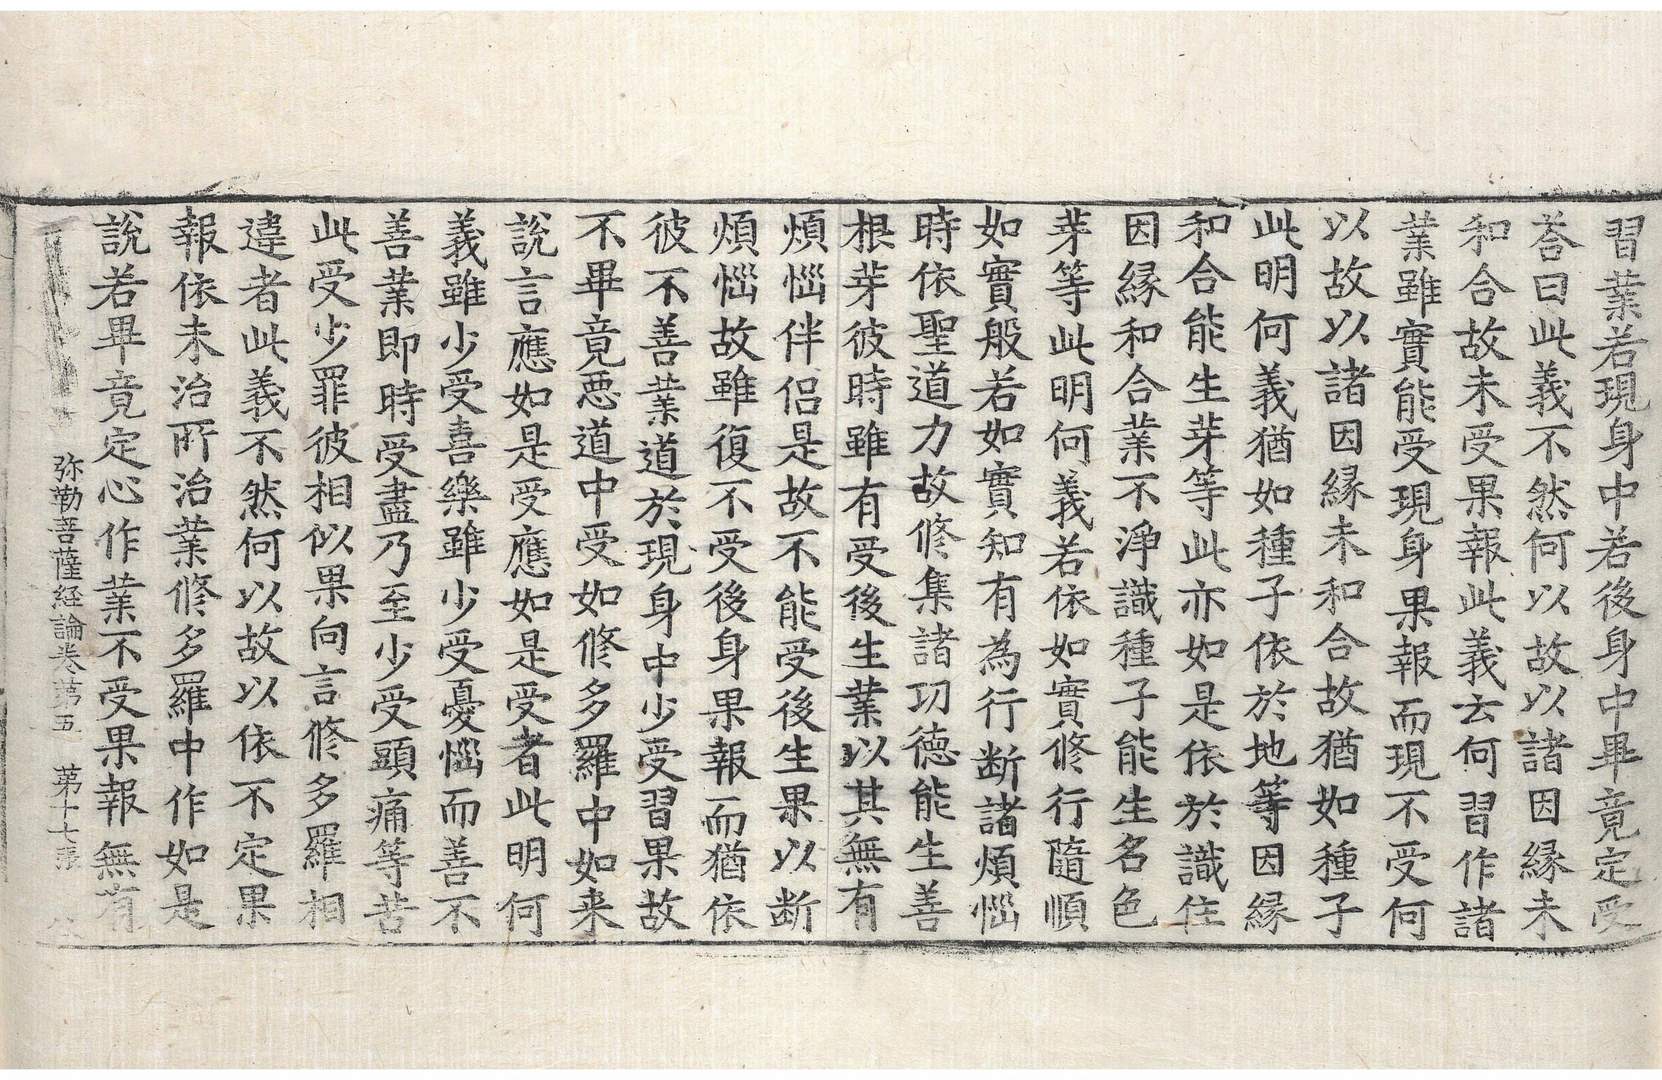 習業若現身中若後身中畢竟定受
荅曰此義不然何以故以諸因縁未
和合故未受果報此義云何習作諸
業雖實能受現身果報而現不受何
以故以諸因縁未和合故猶如種子
此明何義猶如種子依於地等因縁
和合能生芽等此亦如是依於識住
因縁和合業不淨識種子能生名色
芽等此明何義若依如實修行隨順
如實般若如實知有為行斷諸煩惱
時依聖道力故修集諸功德能生善
根芽彼時雖有受後生業以其無有
煩惱伴侣是故不能受後生果以斷
煩惱故雖復不受後身果報而猶依
彼不善業道於現身中少受習果故
不畢竟惡道中受如修多羅中如来
說言應如是受應如是受者此明何
義雖少受喜樂雖少受憂惱而善不
善業即時受盡乃至少受頭痛等苦
此受少罪彼相似果向言修多羅相
違者此義不然何以故以依不定果
報依未治所治業修多羅中作如是
說若畢竟定心作業不受果報無有
弥勒菩薩経論卷苐五 苐十七張